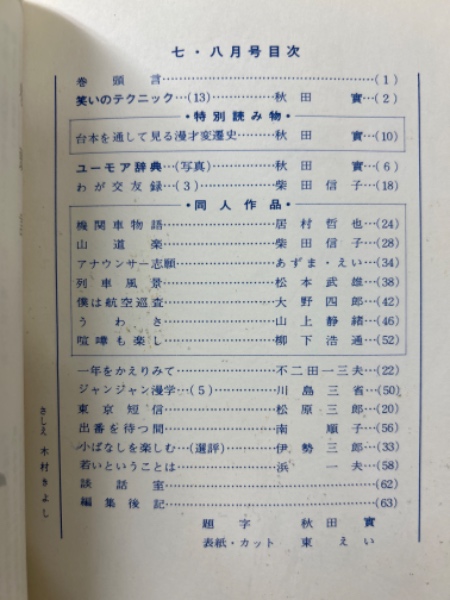 七・八月号目次
巻頭言……(1)
笑いのテクニック…(13)……秋田實…(2)
・特別読み物・
台本を通して見る漫才変遷史……秋田實…(10)
ユーモア辞典…(写真)……秋田實…(6)
わが交友録…(3)……柴田信子…(18)
・同人作品・
機関車物語……居村哲也…(24)
山道楽……柴田信子…(28)
アナウンサー志願……あずま・えい…(34)
列車風景……松本武雄…(38)
僕は航空巡査……大野四郎…(42)
うわさ……山上静緒…(46)
喧嘩も楽し……柳下浩通…(52)
一年をかえりみて……不二田一三夫…(22)
ジャンジャン漫学…(5)……川島三省…(50)
東京短信……松原三郎…(20)
出番を待つ間……南順子…(56)
小ばなしを楽しむ…(選評)……伊勢三郎…(33)
若いということは……浜一夫…(58)
談話室……(62)
編集後記……(63)
題字 秋田實
表紙・カット 東えい
さしえ 木村きよし